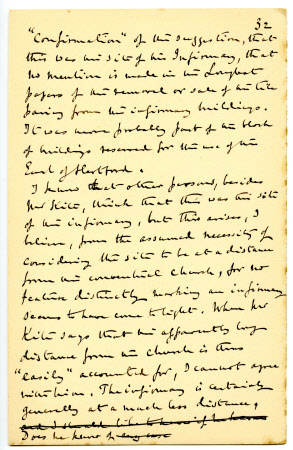 32
"Confirmation" of the suggestion, that
this was the site of the Infirmary, that
no mention is made in the Longleat
papers of the removal or sale of the tile
paving from the infirmary buildings.
It was more probably part of the block
of buildings reserved for the use of the
Earl of Hertford.
I know that other persons, besides
Mr Kite, think that this was the site
of the infirmary, but this arises, I
believe, from the assumed necessity of
considering the site to be at a distance
from the conventual church, for no
feature distinctly marking an infirmary
seems to have come to light. When Mr
Kite says that the apparently long
distance from the church is thus
"easily" accounted for, I cannot agree
with him. The infirmary is certainly
generally at a much less distance,
and I should like to know if he knows
Does he know of any case